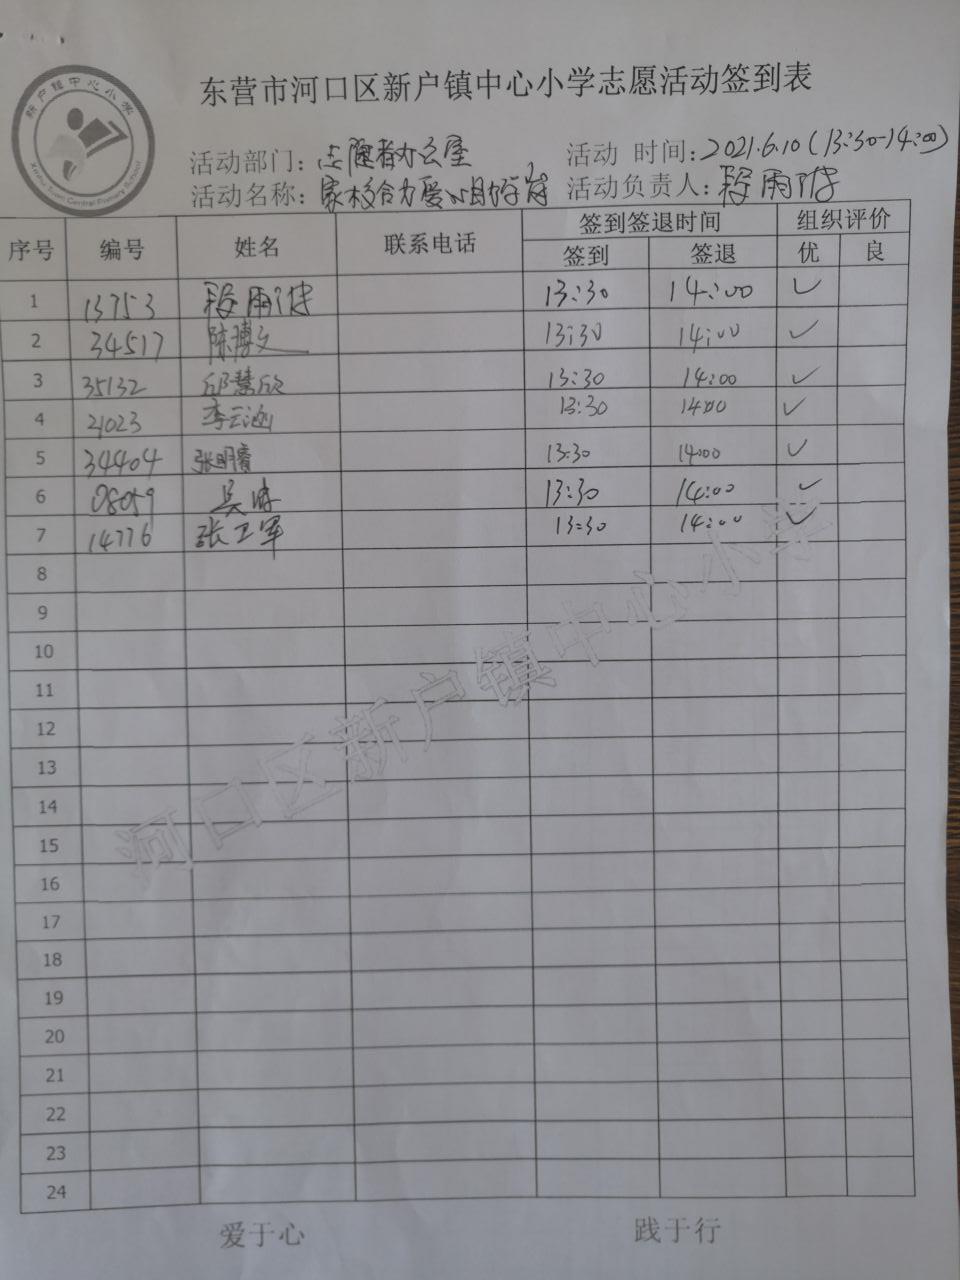 新户镇中心小学
Xinhu Town Central Primary School
东营市河口区新户镇中心小学志愿活动签到表
活动部门：志愿者办公室 活动 时间：2021.6.10(13:30-14:00)
活动名称：家校合力爱心助学岗 活动负责人：段雨
序号 编号 姓名 联系电话 签到签退时间 组织评价
签到 签退 优 良
1 13753 段雨 13:30 14:00 ✓
2 34517 陈博文 13:30 14:00 ✓
3 35132 邱慧欣 13:30 14:00 ✓
4 21023 李云涵 13:30 14:00 ✓
5 34404 张明睿 13:30 14:00 ✓
6 08059 吴 13:30 14:00 ✓
7 14776 张卫军 13:30 14:00 ✓
8
9
10
11
12
13
14
15
16
17
18
19
20
21
22
23
24
河口区新户镇中心小学
爱于心 践于行